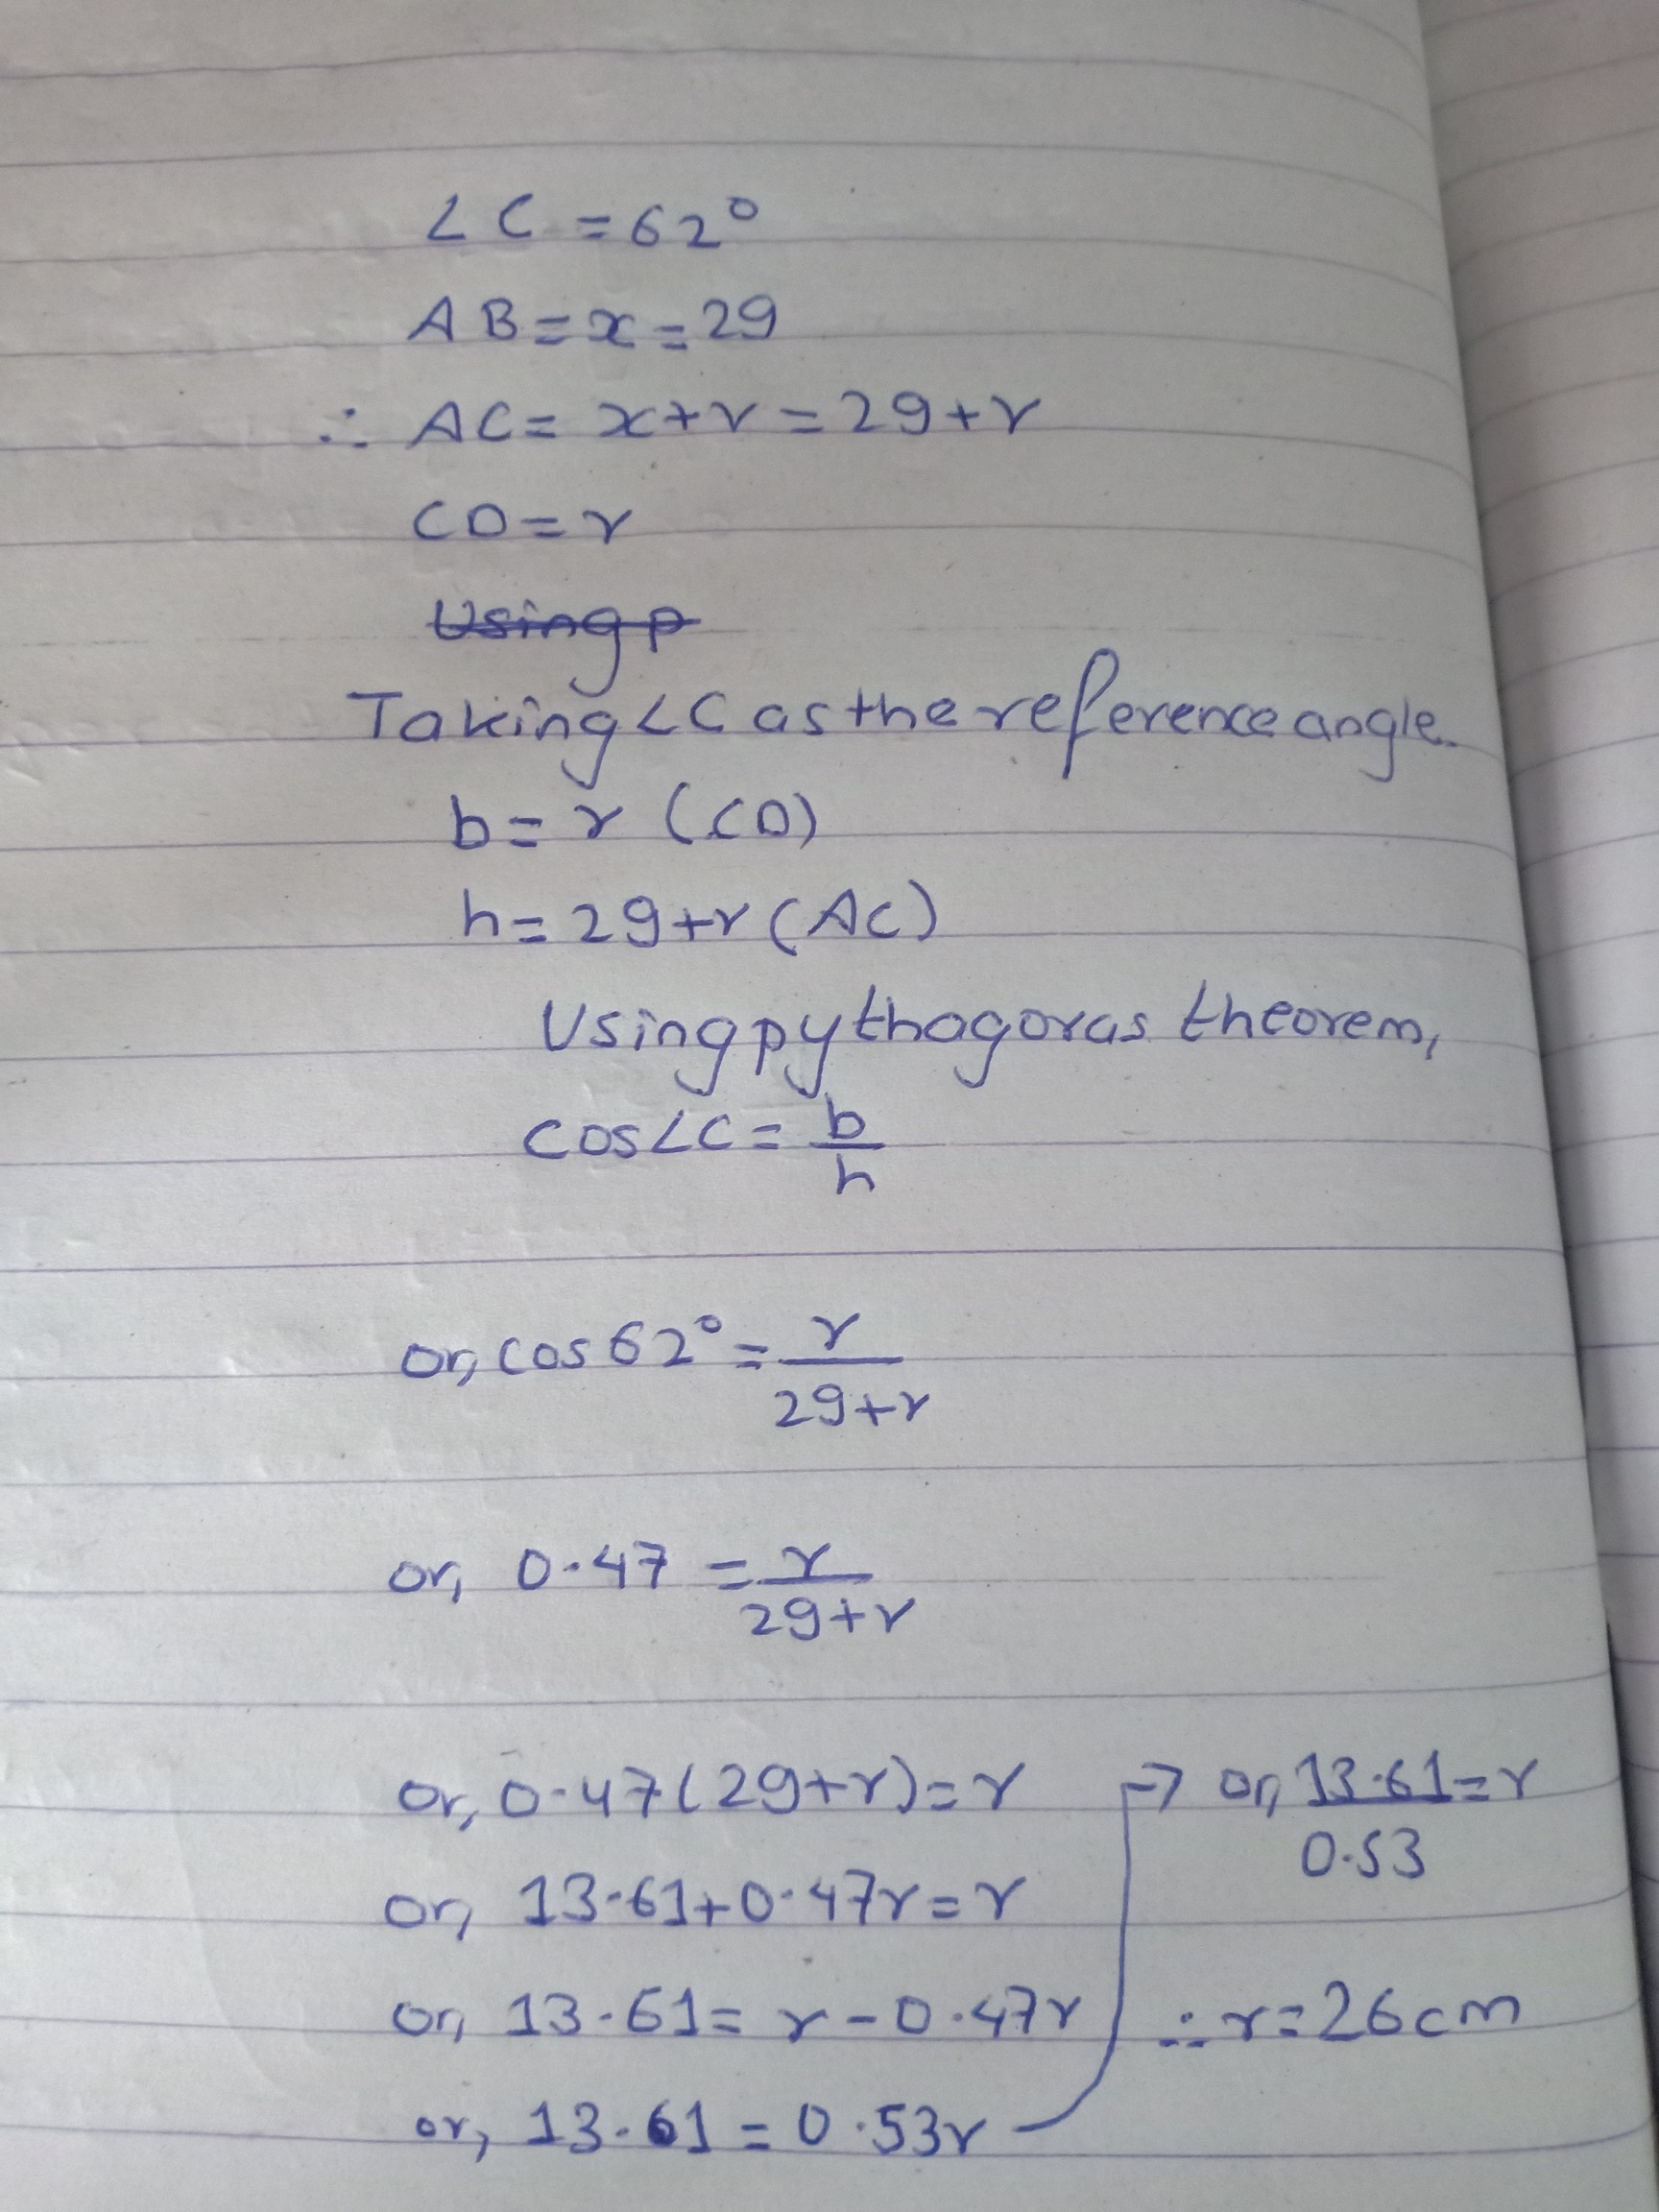 ∠C = 62°
AB = x = 29
∴ AC = x + r = 29 + r
CD = r
Using p
Taking ∠C as the reference angle.
b = r (CD)
h = 29 + r (AC)
Using pythagoras theorem,
cos∠C = b/h
or, cos 62° = r/29+r
or, 0.47 = r/29+r
or, 0.47(29+r) = r
or, 13.61 + 0.47r = r
or, 13.61 = r - 0.47r
or, 13.61 = 0.53r
→ or, 13.61/0.53 = r
∴ r = 26cm